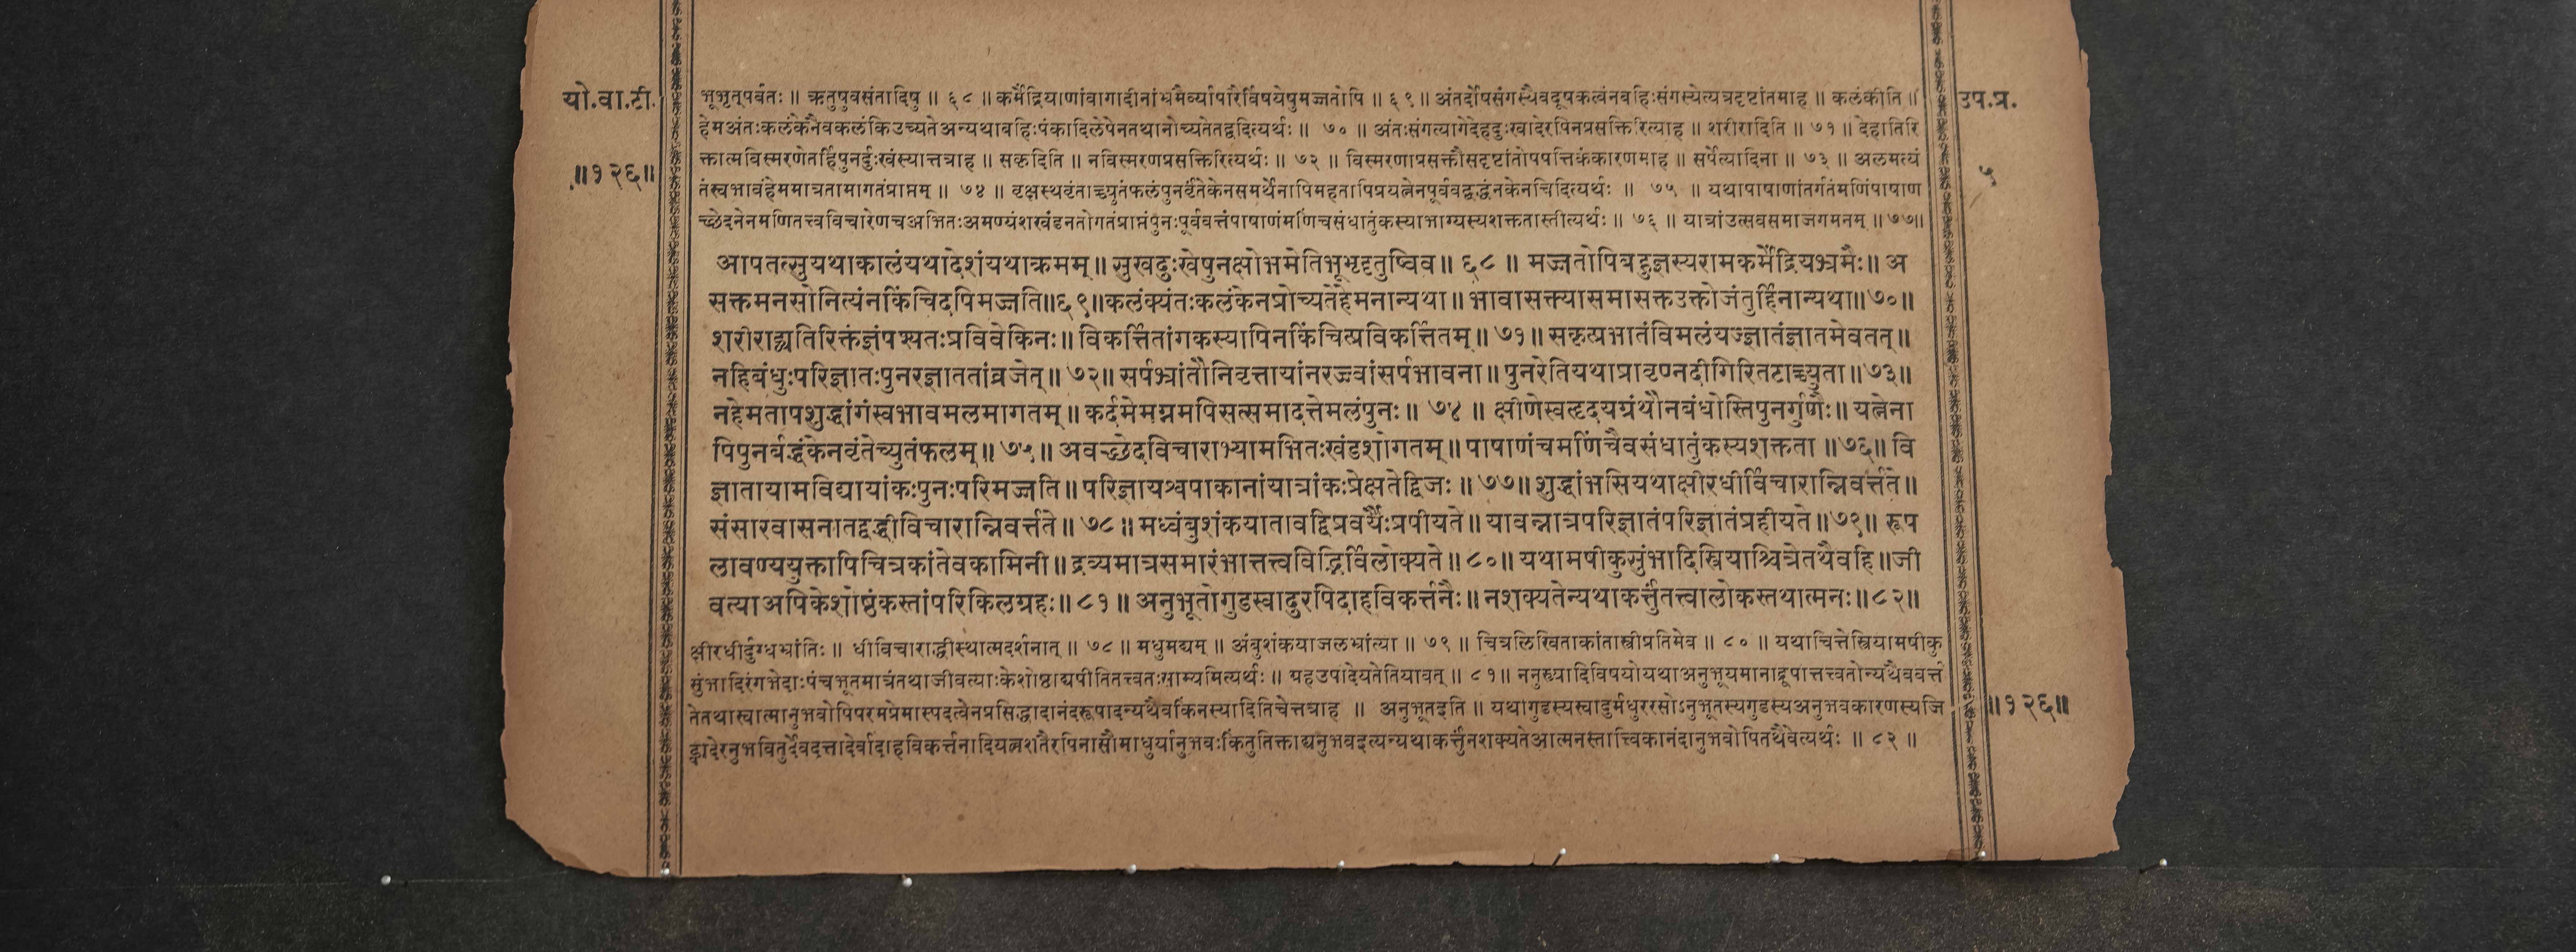 यो.वा.टी.
॥१२६॥
भूभृत्पर्वतः ॥ ऋतुषुवसंतादिषु ॥ ६८ ॥ कर्मेंद्रियाणांवागादीनांभ्रमैर्व्यापारैर्विषयेषुमज्जतोपि ॥ ६९ ॥ अंतर्दोषसंगस्यैवदूषकत्वंनबहिःसंगस्येत्यत्रदृष्टांतमाह ॥ कलंकीति ॥
हेमअंतःकलंकेनैवकलंकिउच्यतेअन्यथाबहिःपंकादिलेपेनतथानोच्यतेतद्वदित्यर्थः ॥ ७० ॥ अंतःसंगत्यागेदेहदुःखादेरपिनप्रसक्तिरित्याह ॥ शरीरादिति ॥ ७१ ॥ देहातिरि
क्तात्मविस्मरणेतर्हिपुनर्दुःखंस्यात्तत्राह ॥ सकृदिति ॥ नविस्मरणप्रसक्तिरित्यर्थः ॥ ७२ ॥ विस्मरणाप्रसक्तौसदृष्टांतोपपत्तिकंकारणमाह ॥ सर्पेत्यादिना ॥ ७३ ॥ अलमत्यं
तंस्वभावंहेममात्रतामागतंप्राप्तम् ॥ ७४ ॥ वृक्षस्थवृंताच्च्युतंफलंपुनर्वृंतेकेनसमर्थेनापिमहतापिप्रयत्नेनपूर्ववद्बद्धंनकेनचिदित्यर्थः ॥ ७५ ॥ यथापाषाणांतर्गतंमणिंपाषाण
च्छेदनेनमणितत्त्वविचारेणचअभितःअमण्यंशखंडनतोगतंप्राप्तंपुनःपूर्ववत्तंपाषाणंमणिंचसंधातुंकस्याभाग्यस्यशक्ततास्तीत्यर्थः ॥ ७६ ॥ यात्रांउत्सवसमाजगमनम् ॥ ७७॥
आपतत्सुयथाकालंयथादेशंयथाक्रमम् ॥ सुखदुःखेषुनक्षोभमेतिभूभृदृतुष्विव ॥ ६८ ॥ मज्जतोपिबहुज्ञस्यरामकर्मेंद्रियभ्रमैः ॥ अ
सक्तमनसोनित्यंनकिंचिदपिमज्जति॥६९॥कलंक्यंतःकलंकेनप्रोच्यतेहेमनान्यथा ॥ भावासक्त्यासमासक्तउक्तोजंतुर्हिनान्यथा॥७०॥
शरीराद्व्यतिरिक्तंज्ञंपश्यतःप्रविवेकिनः ॥ विकर्त्तितांगकस्यापिनकिंचित्प्रविकर्त्तितम् ॥ ७१ ॥ सकृत्प्रभातंविमलंयज्ज्ञातंज्ञातमेवतत् ॥
नहिबंधुःपरिज्ञातःपुनरज्ञाततांव्रजेत् ॥ ७२॥ सर्पभ्रांतौनिवृत्तायांनरज्ज्वांसर्पभावना ॥ पुनरेतियथाप्रावृण्नदीगिरितटाच्च्युता ॥७३॥
नहेमतापशुद्धांगंस्वभावमलमागतम् ॥ कर्दमेमग्नमपिसत्समादत्तेमलंपुनः ॥ ७४ ॥ क्षीणेस्वहृदयग्रंथौनबंधोस्तिपुनर्गुणैः ॥ यत्नेना
पिपुनर्बद्धंकेनवृंतेच्युतंफलम् ॥ ७५ ॥ अवच्छेदविचाराभ्यामभितःखंडशोगतम् ॥ पाषाणंचमणिंचैवसंधातुंकस्यशक्तता ॥७६॥ वि
ज्ञातायामविद्यायांकःपुनःपरिमज्जति ॥ परिज्ञायश्वपाकानांयात्रांकःप्रेक्षतेद्विजः ॥ ७७॥ शुद्धांभसियथाक्षीरधीर्विचारान्निवर्त्तते ॥
संसारवासनातद्वद्धीविचारान्निवर्त्तते ॥ ७८ ॥ मध्वंबुशंकयातावद्विप्रवर्यैःप्रपीयते ॥ यावन्नात्रपरिज्ञातंपरिज्ञातंप्रहीयते ॥७९॥ रूप
लावण्ययुक्तापिचित्रकांतेवकामिनी ॥ द्रव्यमात्रसमारंभात्तत्त्वविद्भिर्विलोक्यते ॥ ८० ॥ यथामषीकुसुंभादिस्त्रियाश्चित्रेतथैवहि ॥जी
वत्याअपिकेशोष्ठंकस्तांपरिकिलग्रहः ॥ ८१ ॥ अनुभूतोगुडस्वादुरपिदाहविकर्त्तनैः ॥ नशक्यतेन्यथाकर्त्तुंतत्त्वालोकस्तथात्मनः ॥ ८२॥
क्षीरधीर्दुग्धभ्रांतिः ॥ धीविचाराद्धीस्थात्मदर्शनात् ॥ ७८ ॥ मधुमद्यम् ॥ अंबुशंकयाजलभ्रांत्या ॥ ७९ ॥ चित्रलिखिताकांतास्त्रीप्रतिमेव ॥ ८० ॥ यथाचित्तेस्त्रियामषीकु
सुंभादिरंगभेदाःपंचभूतमात्रंतथाजीवत्याःकेशोष्ठाद्यपीतितत्त्वतःसाम्यमित्यर्थः ॥ ग्रहउपादेयतेतियावत् ॥ ८१ ॥ ननुरूयादिविषयोयथाअनुभूयमानाद्रूपात्तत्त्वतोन्यथैवपवर्त्त
तेतथास्वात्मानुभवोपिपरमप्रेमास्पदत्वेनप्रसिद्धादानंदरूपादन्यथैवकिंनस्यादितिचेत्तत्राह ॥ अनुभूतइति ॥ यथागुडस्यस्वादुर्मधुररसोऽनुभूतस्यगुडस्यअनुभवकारणस्यजि
ह्वादेरनुभवितुर्देवदत्तादेर्वादाहविकर्त्तनादियत्नशतैरपिनासौमाधुर्यानुभवःकिंतुतिक्ताद्यनुभवइत्यन्यथाकर्त्तुंनशक्यतेआत्मनस्तात्त्विकानंदानुभवोपितथैवेत्यर्थः ॥ ८२ ॥
उप.प्र.
५
॥१२६॥